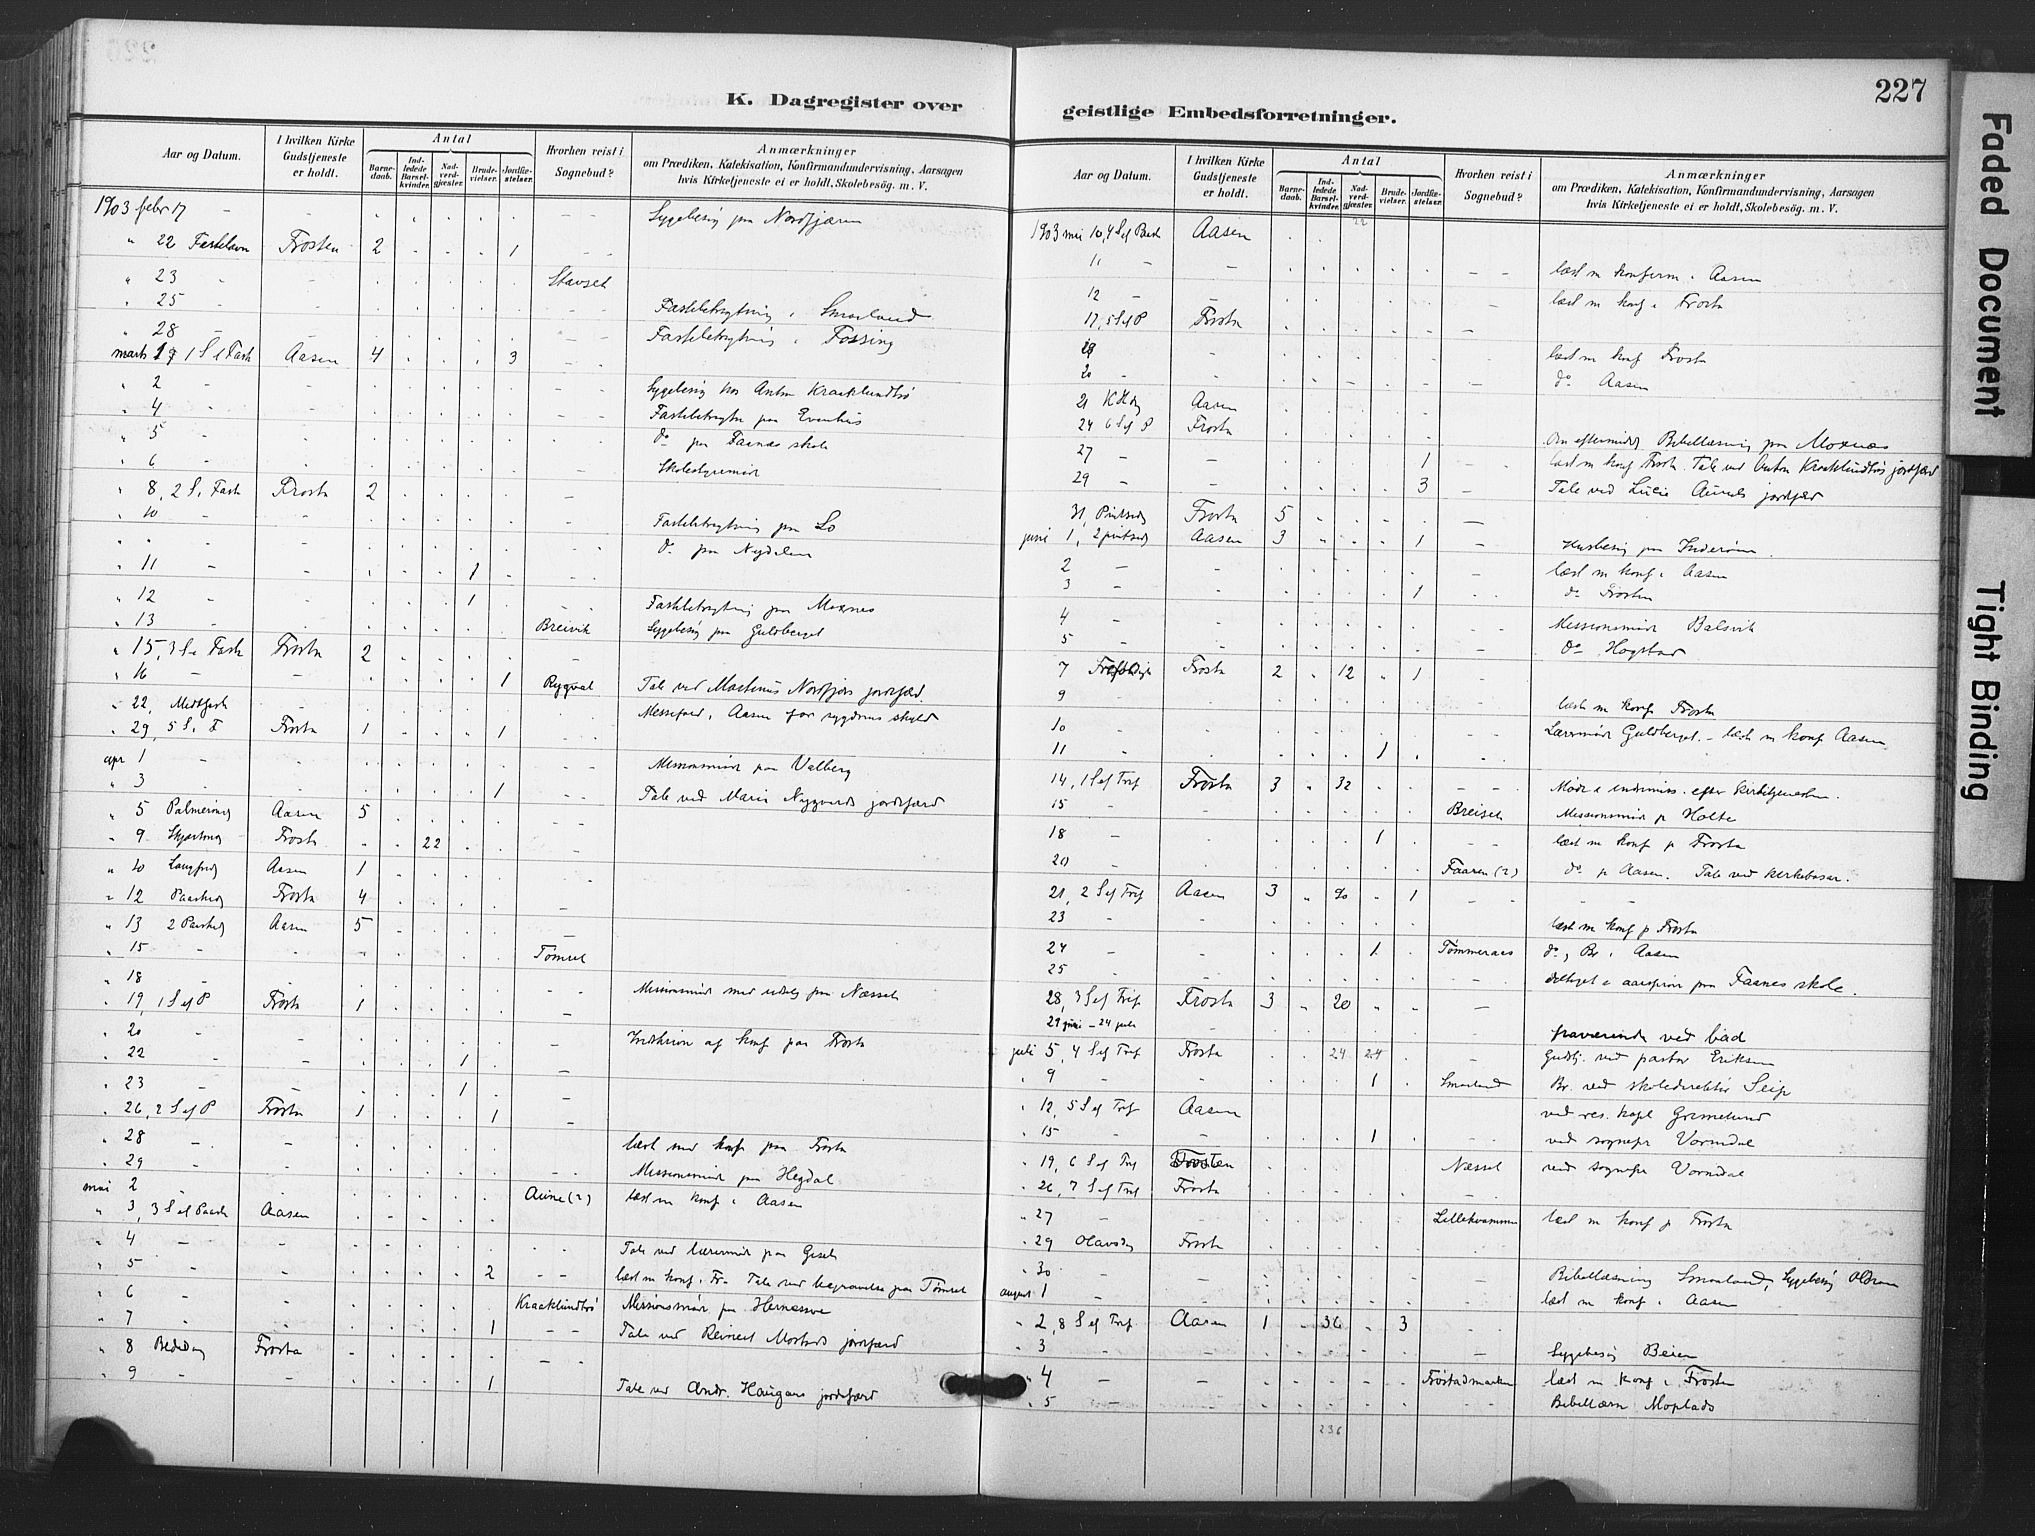 227
K. Dagregister over
geistlige Embedsforretninger.
Aar og Datum.
I hvilken Kirke Gudstjeneste er holdt.
Antal
Barnedaab.
Indledede Barselkvinder.
Nadverdgjæster.
Brudevielser.
Jordfæstelser.
Hvorhen reist i Sognebud?
Anmærkninger
om Prædiken, Katekisation, Konfirmandundervisning, Aarsagen
hvis Kirketjeneste ei er holdt, Skolebesög. m. V.
1903 febr 17 Sygebesøg paa Nordfjæren
" 22 Fastelavn Frosten 2 1
" 23 Stavset
" 25 Fastebetragtning i Smaaland
" 28 Fastebetragtning i Fossing
marts 1 S i Fast Aasen 4 3
" 2 Sygebesøg hos Anton Kraaklundbø
" 4 Fastebetragtn paa Evenhus
" 5 do paa Faanes skole
" 6 Skolestyremøde
" 8, 2 S. i Fast Frosta 2
" 10 Fastebetragtning paa Lo
" " do paa Nydalen
" 11 1
" 12 1 Fastebetragtning paa Moxnes
" 13 Breivik Sygebesøg paa Guldberget
" 15, 3 S i Fast Frosta 2
" 16 1 Rygval Tale ved Martinus Nordfjærs jordfærd.
" 22, Midtfast Messefald i Aasen for sygdoms skyld
" 29, 5 S. i F Frosta 1 1
apr 1 Missionsmøde paa Valberg
" 3 1 Tale ved Maria Nygaards jordfærd
" 5 Palmesøndag Aasen 5
" 9 Skjærtorsd Frosta 22
" 10 Langfred Aasen 1
" 12 Paaskedg Frosta 4
" 13 2 Paaskedg Aasen 5
" 15 Tømset
" 18 Missionsmøde med udsalg paa Næsset
" 19, 1 S ef P Frosta 1
" 20 Indskrivn af konf paa Frosta
" 22 1
" 23 1
" 26, 2 S ef P Frosta 1 1
" 28 læst med konf paa Frosta
" 29 Missionsmøde paa Hegdal
mai 2 Aune (2) læst m konf i Aasen
" 3, 3 S ef Paaske Aasen
" 4 Tale ved læremøde paa Gisel
" 5 2 læst m konf. i Fr. Tale ved begravelse paa Tømset
" 6 Kraaklundbø Missionsmøde paa
" 7 1 Tale ved Reinert Mostads jordfærd
" 8 Bededag Frosta
" 9 1 Tale ved Andr. Haugans jordfærd
Aar og Datum.
I hvilken Kirke Gudstjeneste er holdt.
Antal
Barnedaab.
Indledede Barselkvinder.
Nadverdgjæster.
Brudevielser.
Jordfæstelser.
Hvorhen reist i Sognebud?
Anmærkninger
om Prædiken, Katekisation, Konfirmandundervisning, Aarsagen
hvis Kirketjeneste ei er holdt, Skolebesög. m. V.
22
1903 mai 10, 4 S ef Paask Aasen
11 læst m konferm. i Aasen
12 læst m konf i Frosta
17, 5 S ef P Frosta
19 læst m konf Frosta
20 do Aasen
21 KHdg Aasen
24 6 S ef P Frosta Om eftermidd Bibellæsning paa Moxnes
27 1 læst m konf Frosta. Tale ved Anton Kraaklundbøs jordfærd
29 3 Tale ved Lucie Aunets jordfærd
31, Pintsedg Frosta 5
juni 1, 2 pintsedg Aasen 3 1 Husbesøg paa Inderøen.
2 læst m konf i Aasen
3 1 do Frosten
4 Missionsmøde Balsvik
5 do Hogstad
7 Frosta 2 12 1
9 læst m konf Frosta
10 Læremøde Guldberget. – læst m konf Aasen
11 1
14, 1 S ef Tref Frosta 3 32 Møde i indremiss. efter kirketjenesten.
15 Breiset Missionsmøde p Holte
18 1 læst m konf p Frosta
20 Faaren (2) do p Aasen. Tale ved kirkebasar.
21, 2 S ef Tref Aasen 3 20 1
23 læst m konf p Frosta
24 1 Tømmeraas do, Br. i Aasen
25 deltaget i aarsprøve paa Faanes skole.
28, 3 S ef Tref Frosta 3 20
29 juni – 24 juli fraværende ved bad
juli 5, 4 S ef Tref Frosta 24 24 Gudstj. ved pastor Eriksen
" 9 1 Smaaland Br. ved skoledirektør Seip
" 12, 5 S ef Tref Aasen ved res. kapl Grimelund
" 15 1 ved sognepr Vormdal
" 19, 6 S ef Tref Frosten Næsset ved sognepr Vormdal
" 26, 7 S ef Tref Frosta
" 27 Lillekvammen læst m konf p Frosta
" 29 Olavsdg Frosta
" 30 Bibellæsning Smaaland, Sygebesøg
august 1 læst m konf i Aasen
" 2, 8 S ef Tref Aasen 1 36 3
" 3 Sygebesøg
" 4 Frøstadmarken læst m konf i Frosten
" 5 Bibellæsn Moplads
236
Faded Document
Tight Binding